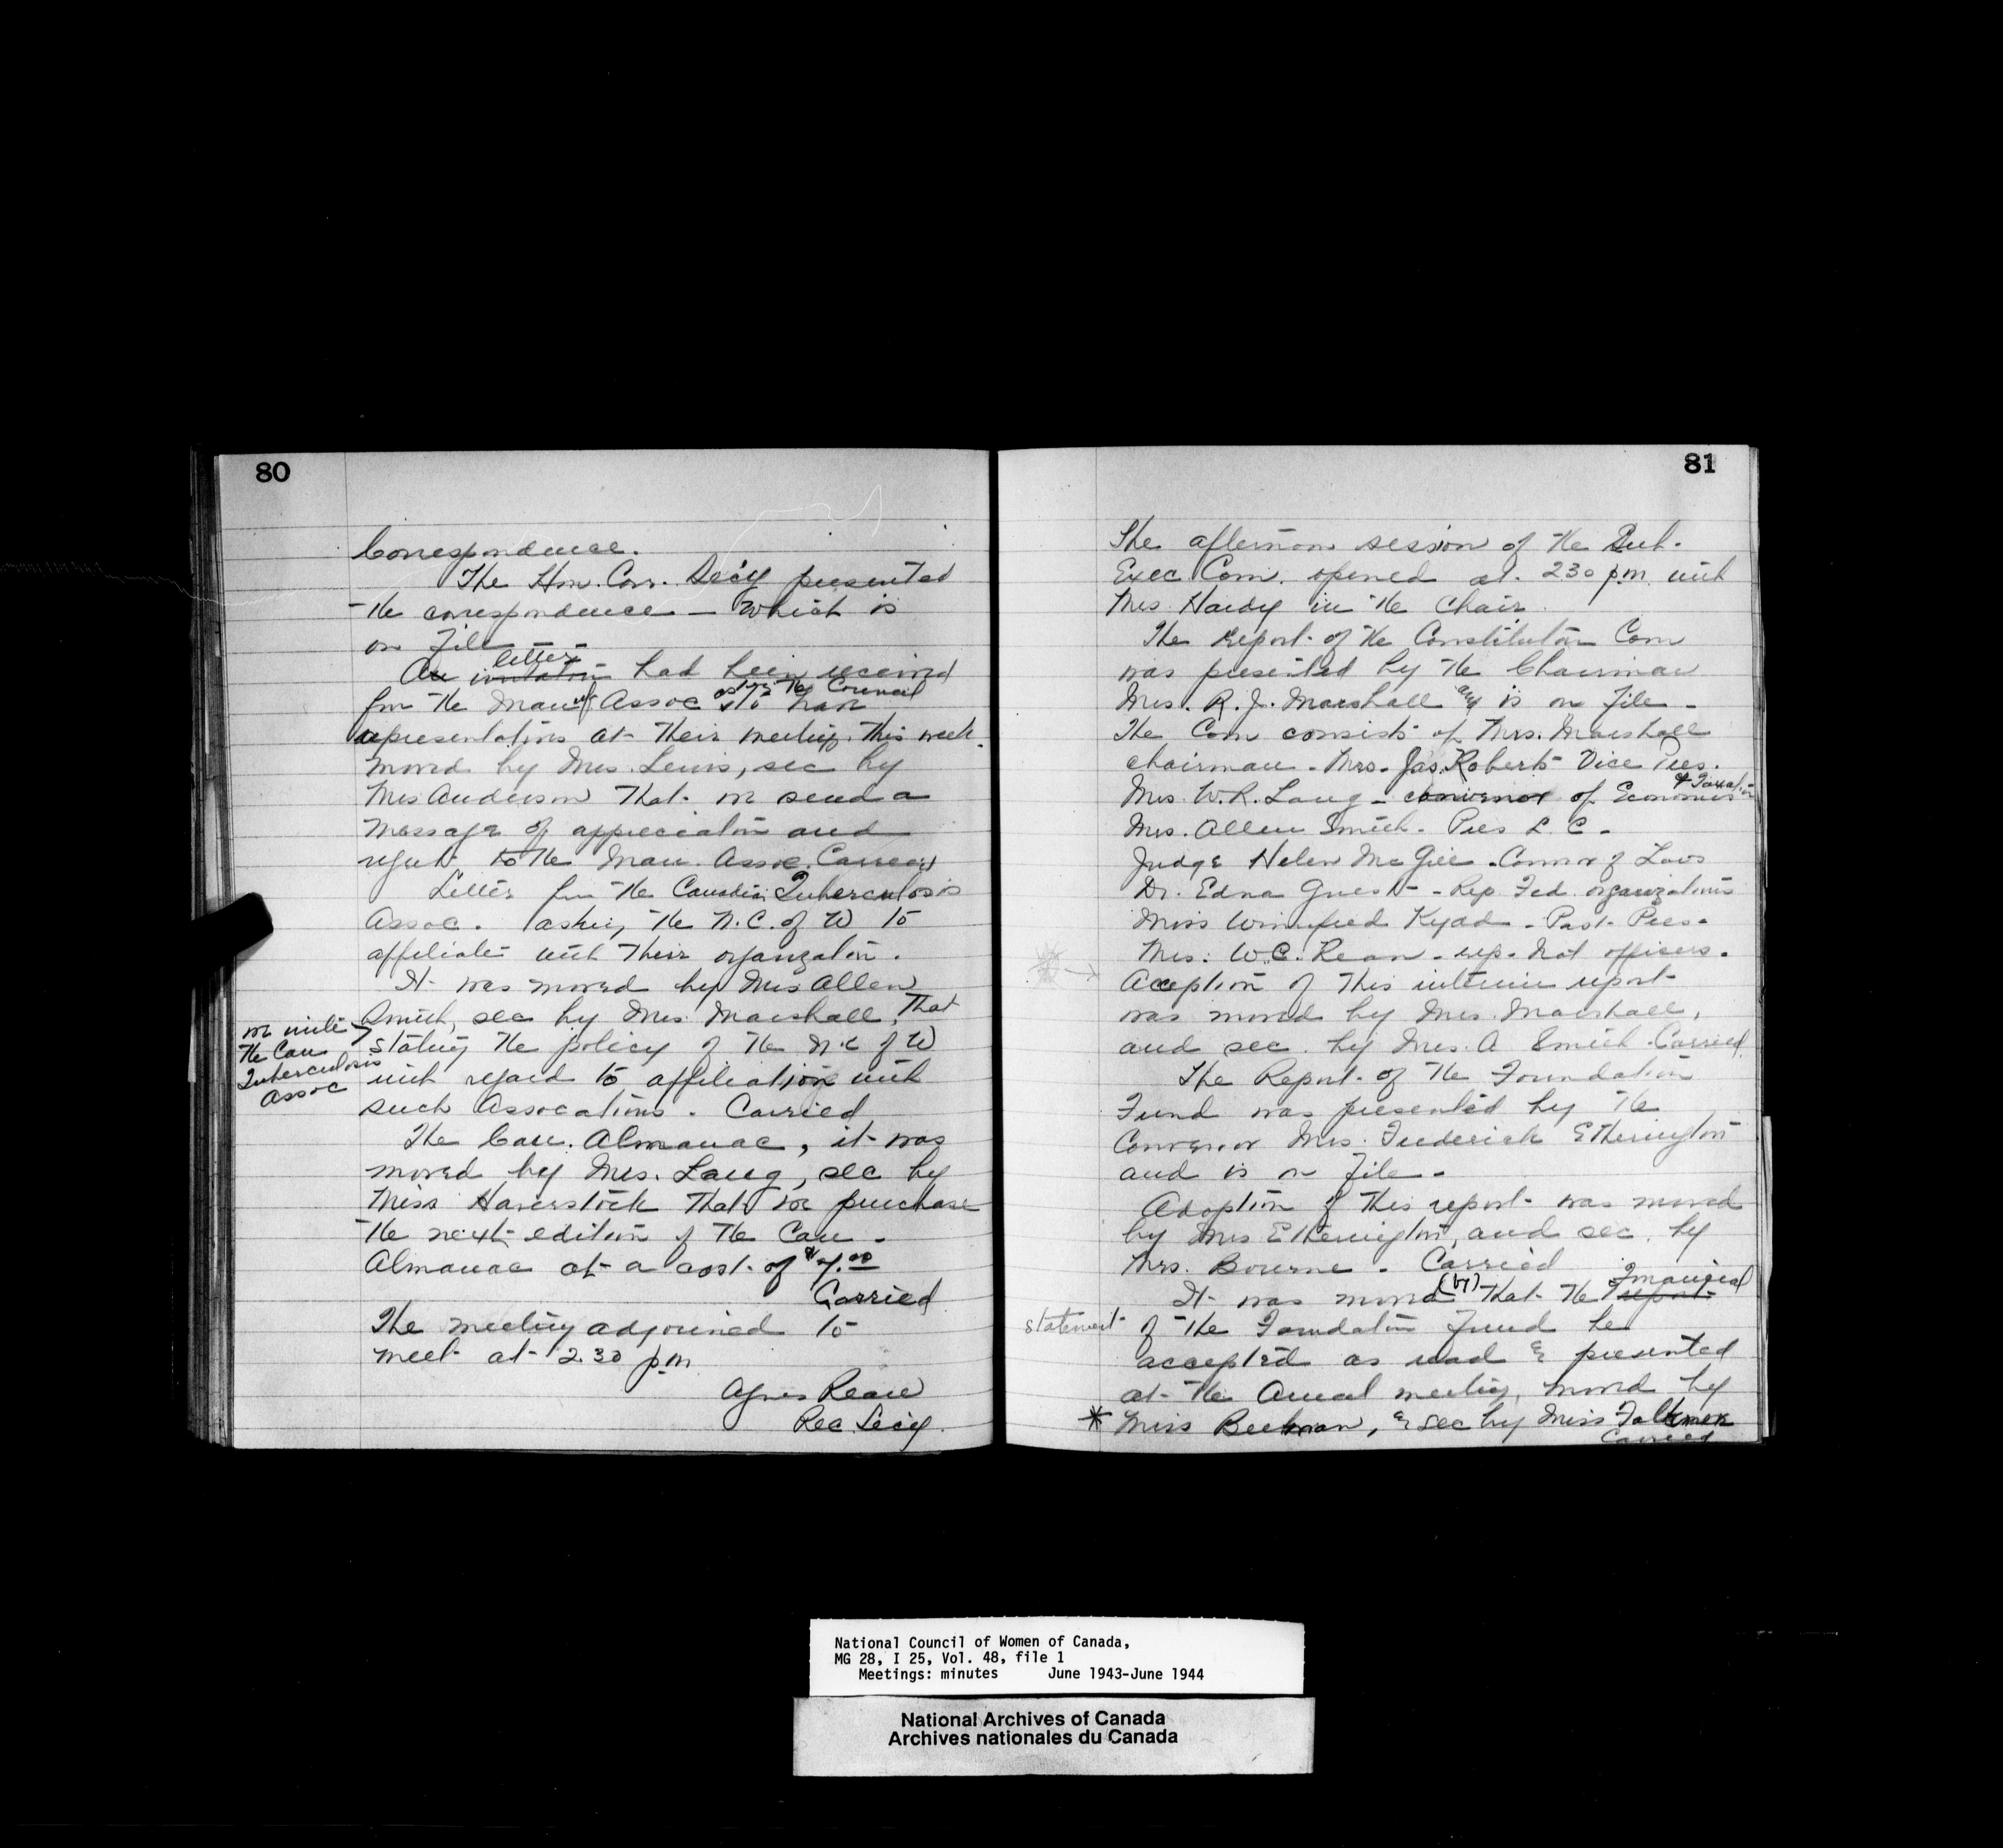 80
Correspondence.
The Hon. Corr. Sec'y presented
the correspondence — which is
on File
letter
An invitation had been received
asking the Council
from the Manuf Assoc to have
representatives at their meeting this week.
moved by Mrs. Lewis, sec by
Mrs Anderson that we send a
message of appreciation and
regret to the Man. Assoc. Carried
Letter from the Canadian Tuberculosis
Assoc. asking the N.C. of W to
affiliate with their organization.
It was moved by Mrs Allen
Smith, sec by Mrs. Marshall, that
we write
the Can
Tuberculosis
Assoc
stating the policy of the N.C of W
with regard to affiliation with
such Assocations. Carried
The Can. Almanac, it was
moved by Mrs. Laug, sec by
Miss Haverstock that we purchase
the next edition of the Can.
Almanac at a cost of $7.00
Carried
The meeting adjourned to
meet at 2.30 p.m
Agnes Reare
Rec. Sec'y.
81
The afternoon session of the Sub.
Exec. Com. opened at 230 p.m. with
Mrs Hardy in the Chair.
The report of the Constitution Com
was presented by the Chairman
Mrs. R. J. Marshall and is on file -
The Com consists of Mrs. Marshall
chairman - Mrs. Jas. Roberts Vice Pres.
& Taxation
Mrs. W. R. Laug - convenor of Economics
Mrs. Allen Smith - Pres L. C -
Judge Helen McGill - Connor of Laws
Dr. Edna Guest - Rep. Fed. organizations
Miss Winnifred Kydd - Past. Pres.
Mrs. W. C. Rean - rep. Nat officers.
Aception of this interim report
was moved by Mrs. Marshall,
and sec. by Mrs. A Smith. Carried
The Report of the Foundation
Fund was presented by the
Convenor Mrs. Frederick Etherington
and is on file -
Adoption of this report was moved
by Mrs Etherington, and sec. by
Mrs. Bourne - Carried
financial
It was moved (by) that the report
statement of the Foundation Fund be
accepted as read & presented
at the Annual meeting, moved by
* Miss Beekman, & sec by Miss Falkner
Carried
National Council of Women of Canada,
MG 28, I 25, Vol. 48, file 1
Meetings: minutes June 1943-June 1944
National Archives of Canada
Archives nationales du Canada